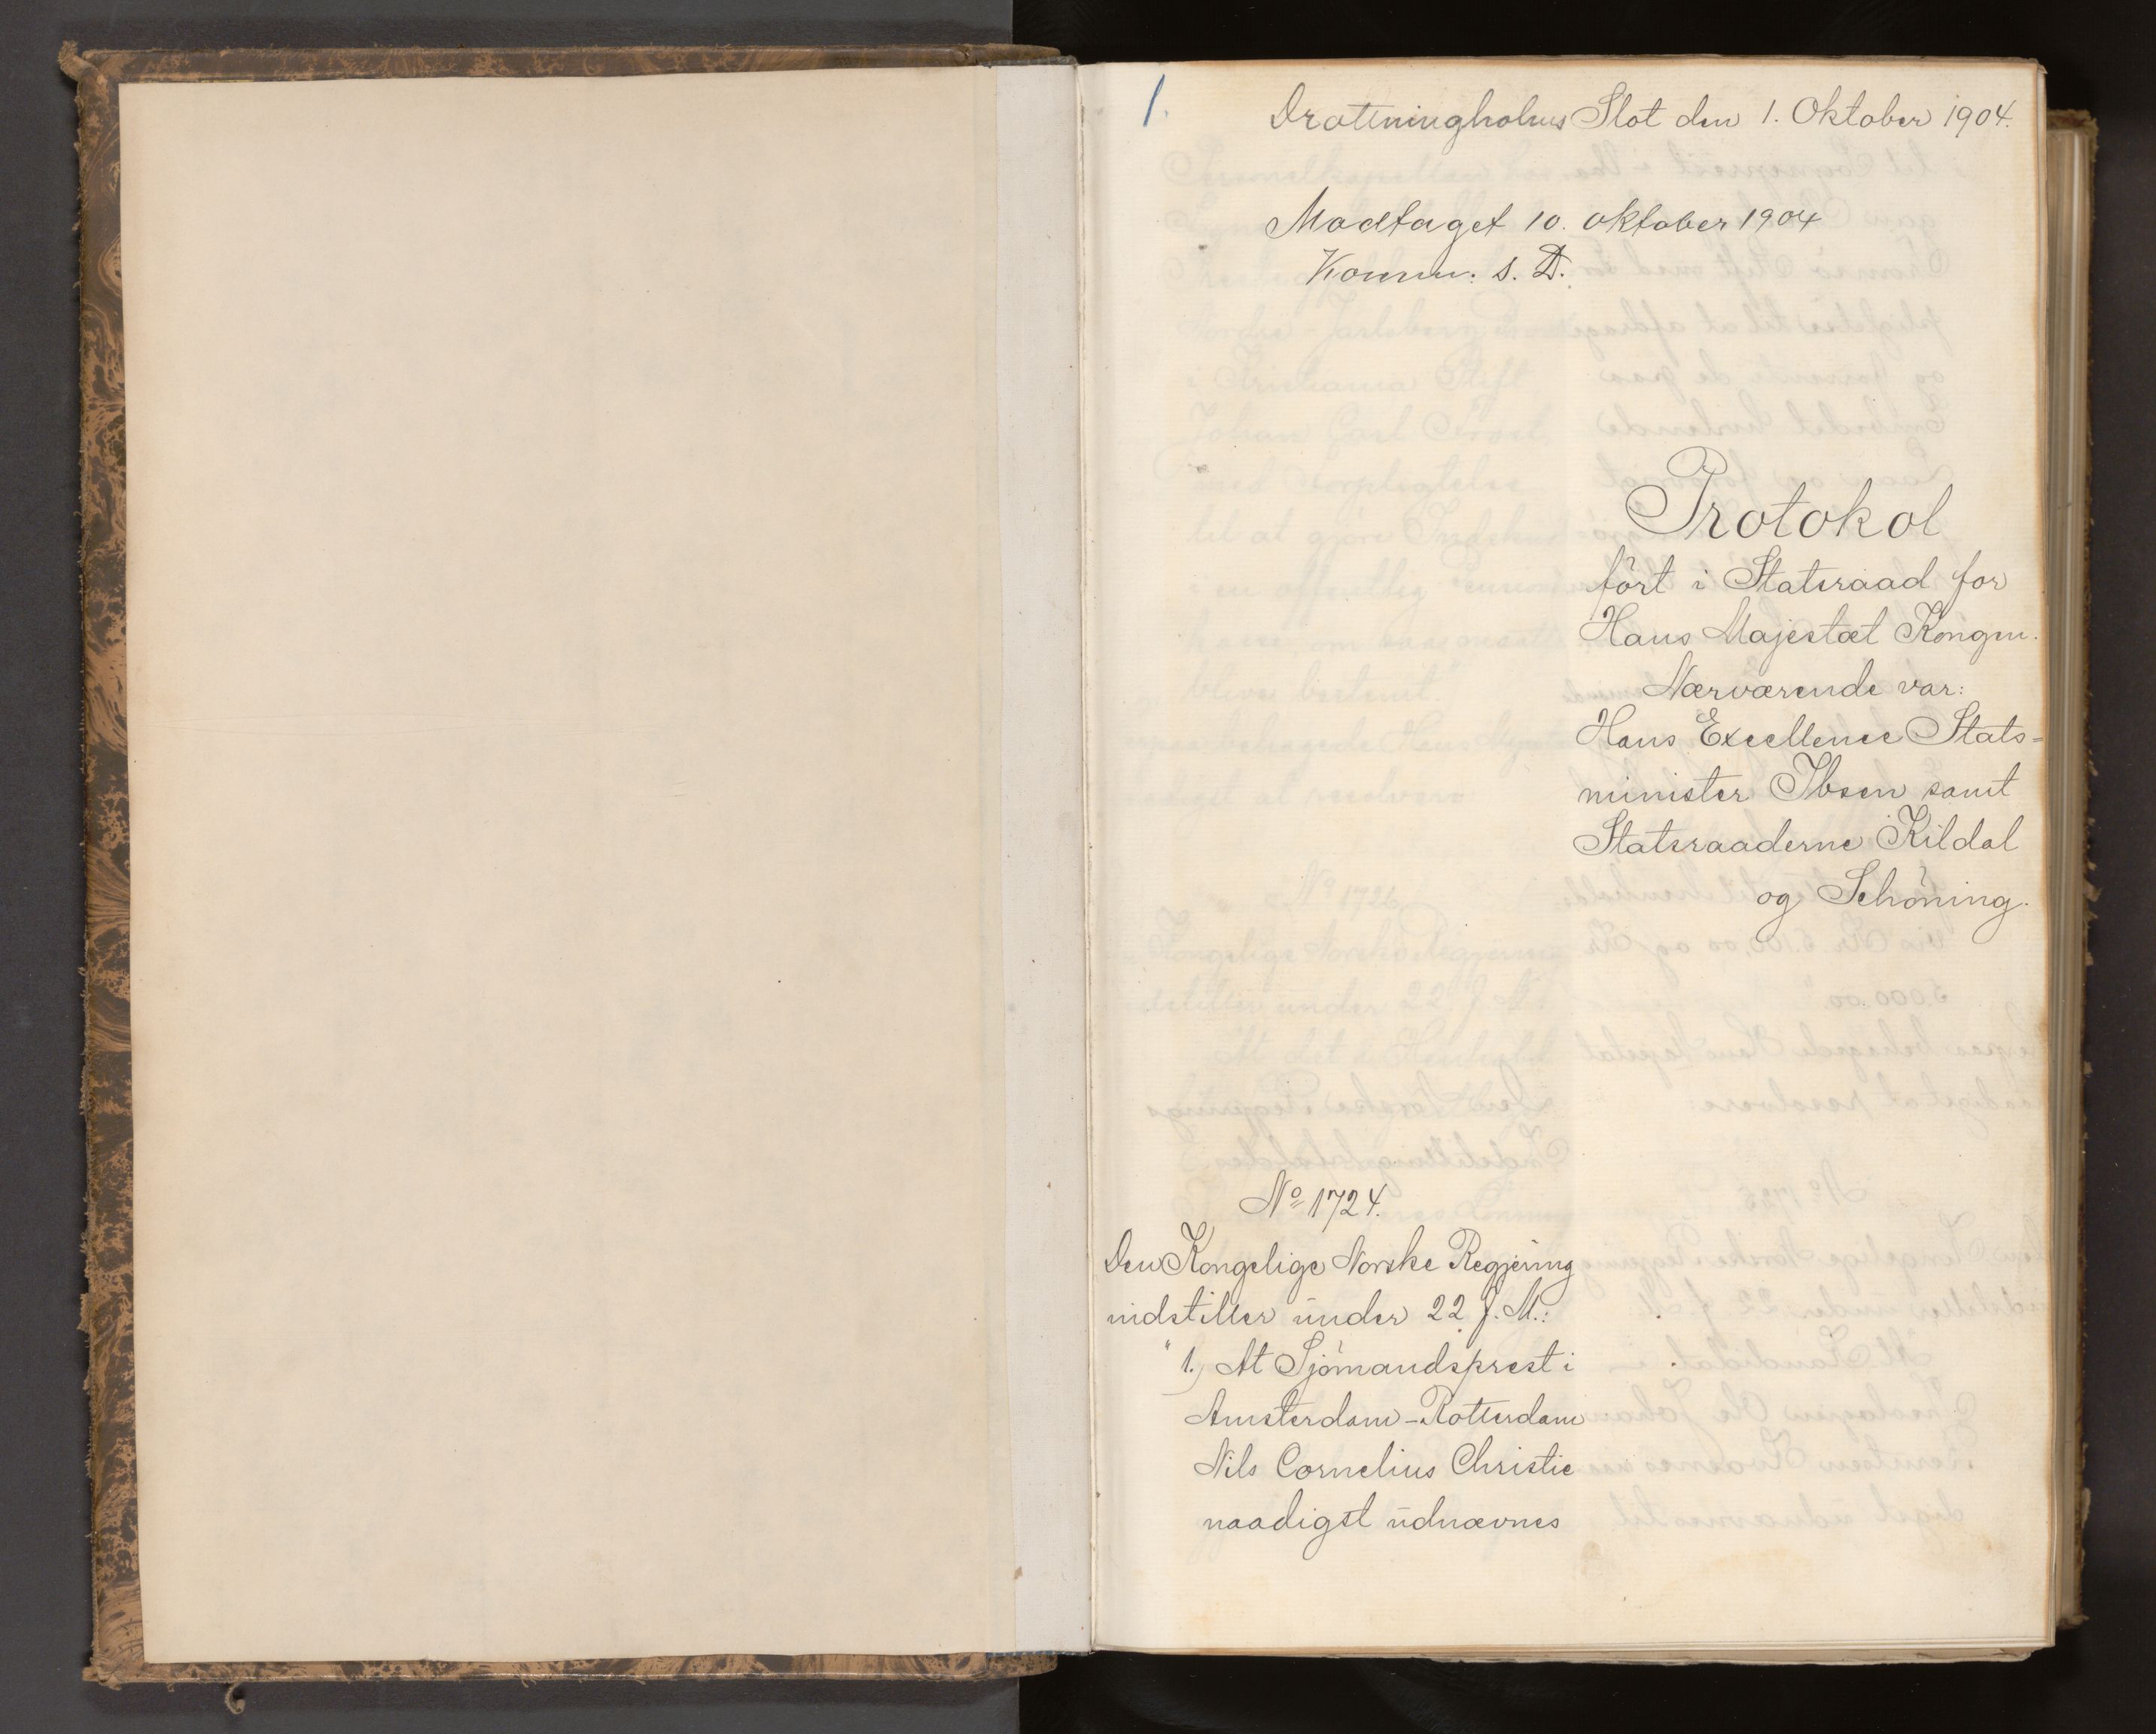 1.
Drottningholms Slot den 1. Oktober 1904.
Modtaget 10. oktober 1904
Komm. s. D.
Protokol
fört i Statsraad for
Hans Majestæt Kongen.
Nærværende var:
Hans Excellence Stats=
minister Ibsen samt
Statsraaderne Kildal
og Schöning.
No 1724.
Den Kongelige Norske Regjering
indstiller under 22 f. M.:
"1.) At Sjömandsprest i
Amsterdam-Rotterdam
Nils Cornelius Christie
naadigst udnævnes